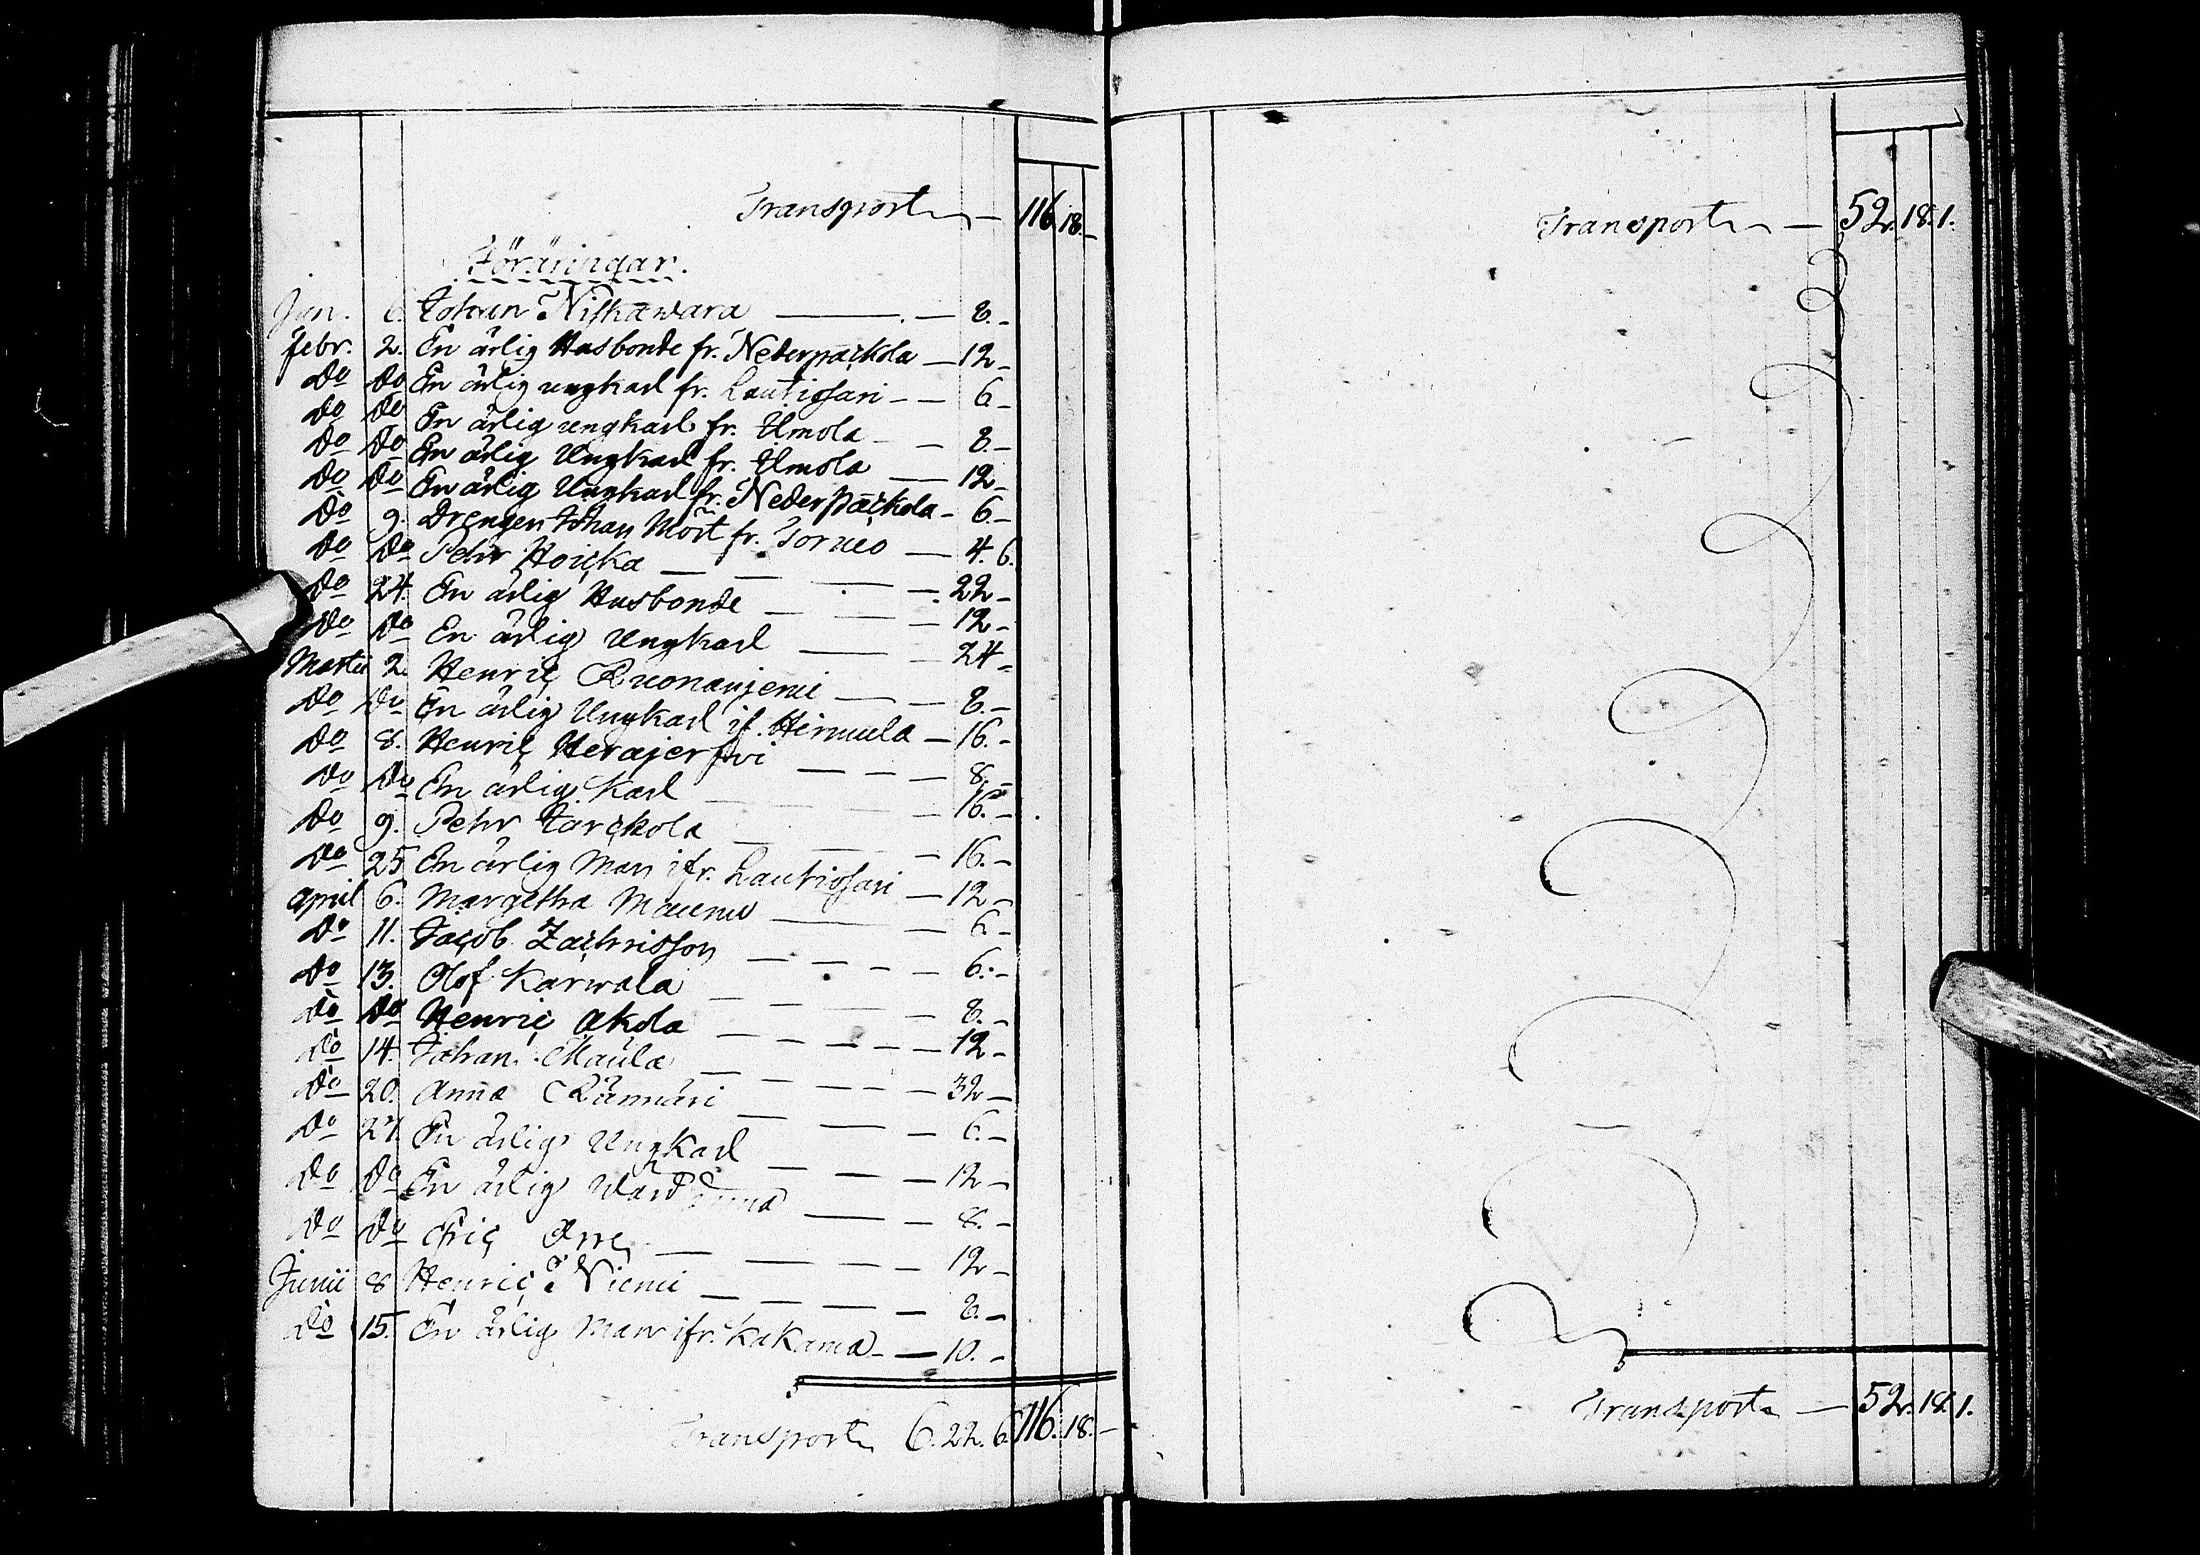 Transport — 116. 18. —
Föräringar.
Jan. 6. Johan Niskawara — 8. —
Febr. 2. En ärlig Husbonde fr. Nederpaickola — 12 —
Do Do En ärlig ungkarl fr. Lautiosari — 6 —
Do Do En ärlig ungkarl fr. Ilmola — 8. —
Do Do En ärlig Ungkarl fr. Ilmola — 12 —
Do Do En ärlig Ungkarl fr. Nederpaickola — 6. —
Do 9. Drengen Johan Mört fr. Torneo — 4. 6.
Do Do Pehr Hoicka — 22 —
Do 24. En ärlig Husbonde — 12 —
Do Do En ärlig Ungkarl — 24 —
Martii 2. Henric Ruonanjemi — 8. —
Do Do En ärlig Ungkarl if. Hirmula — 16. —
Do 8. Henric Herajerfwi — 8. —
Do Do En ärlig Karl — 16. —
Do 9. Pehr Jarckola — 16. —
Do 25 En ärlig Man ifr. Lautiosari — 12 —
April 6. Margetha Maunu — 6. —
Do 11. Jacob Zachrisson — 6. —
Do 13. Olof Karwala — 8. —
Do Do Henric Akola — 12 —
Do 14. Johan Maula — 32 —
Do 20. Anna Rännäri — 6. —
Do 27. En ärlig Ungkarl — 12 —
Do Do En ärlig Wärdinna — 8. —
Do Do Eric — 12 —
Junii 8 Henric Niemi — 8. —
Do 15. En ärlig Man ifr. Kakama — 10. —
Transport 6. 22. 6. 116. 18. —
Transport — 52. 18. 1.
Transport — 52. 18. 1.